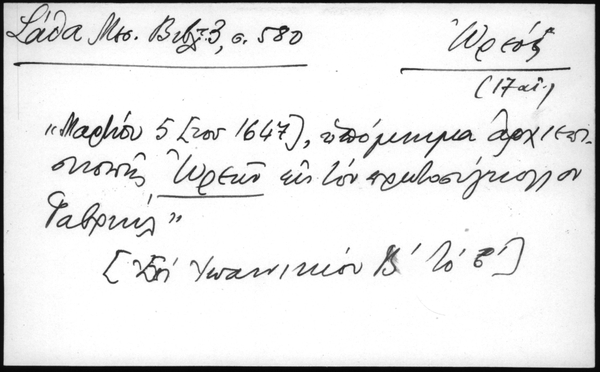 Σάθα Μεσ. Βιβλ. 3, σ. 580
Ὠρεός
(17 αἰ.)
"Μαρτίου 5 [του 1647], ὑπόμνημα ἀρχιεπι-
σκοπῆς Ὠρεῶν εἰς τόν πρωτοσύγκελλον
Γαβριήλ"
[Ἐπί Ἰωαννικίου Β΄ τό β΄]